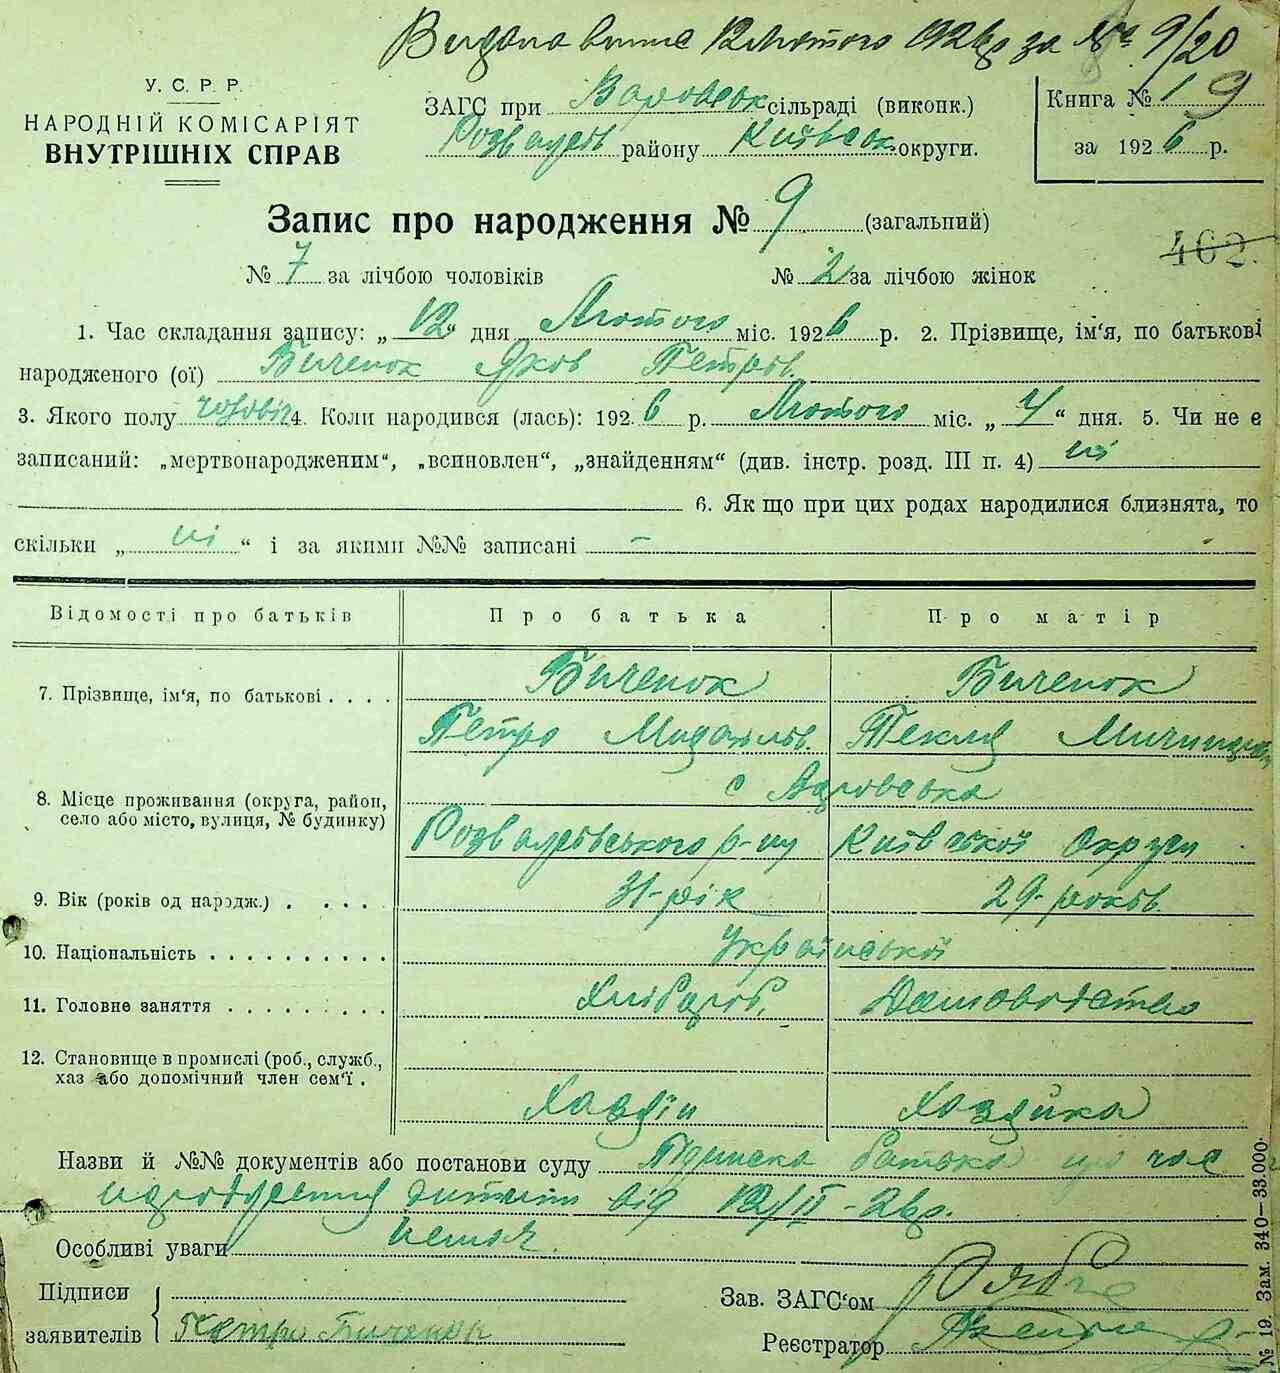 Видана випис 12 лютого 1926 р за № 9/20
У. С. Р. Р.
НАРОДНІЙ КОМІСАРІЯТ
ВНУТРІШНІХ СПРАВ
ЗАГС при сільраді (виконк.)
Розважів району Київськ округи.
Книга № 1 9
за 1926 р.
Запис про народження № 9 (загальний)
462.
№ 7 за лічбою чоловіків № 2 за лічбою жінок
1. Час складання запису: „12“ дня Лютого міс. 1926 р. 2. Прізвище, ім‘я, по батькові
народженого (ої) Биченок Яков Петров.
3. Якого полу чоловіч 4. Коли народився (лась): 1926 р. Лютого міс. „4“ дня. 5. Чи не є
записаний: „мертвонародженим“, „всиновлен“, „знайденням“ (див. інстр. розд. III п. 4) ні
6. Як що при цих родах народилися близнята, то
скільки „ ні “ і за якими №№ записані –
Відомості про батьків Про батька Про матір
7. Прізвище, ім‘я, по батькові . . . . Биченок Биченок
Петро Михайлов. Текля
8. Місце проживання (округа, район,
село або місто, вулиця, № будинку)
с
Розважівського р-ну Київської Округи
9. Вік (років од народж.) . . . . 31-рік 29-років.
10. Національність . . . . . . . . . . Української
11. Головне заняття . . . . . . . . . Хлібороб. Домоводство
12. Становище в промислі (роб., служб.,
хаз або допомічний член сем‘ї .
Хазяїн Хазяйка
Назви й №№ документів або постанови суду Підписка батька про час
народження дитини від 12/II-26 р.
Особливі уваги немає
Підписи
заявителів Петро Биченок
Зав. ЗАГС‘ом
Реєстратор
№ 19. Зам. 340—33.000.